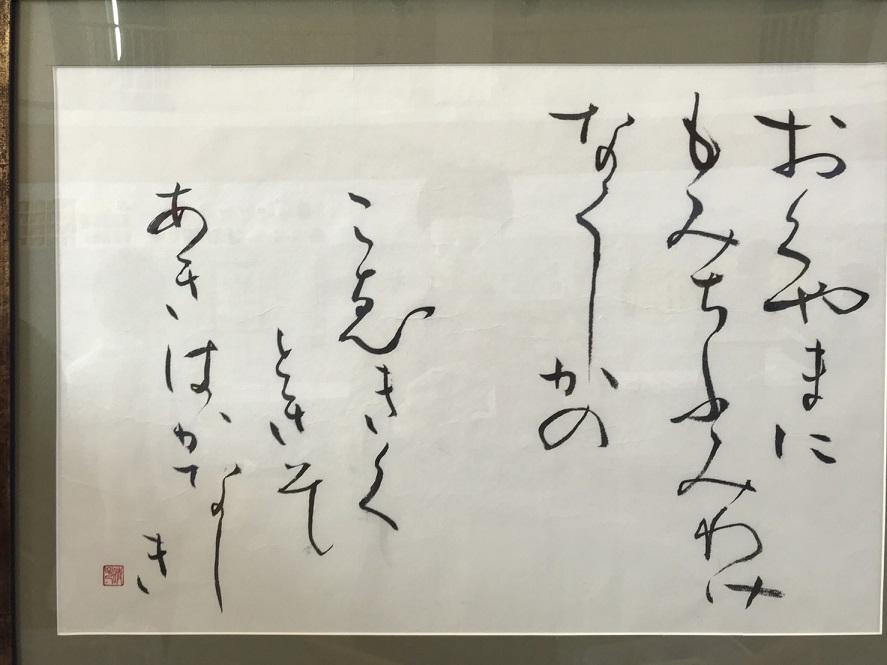 おくやまに
もみちふみわけ
なくしかの
こゑきく
ときそ
あきはかなし
き